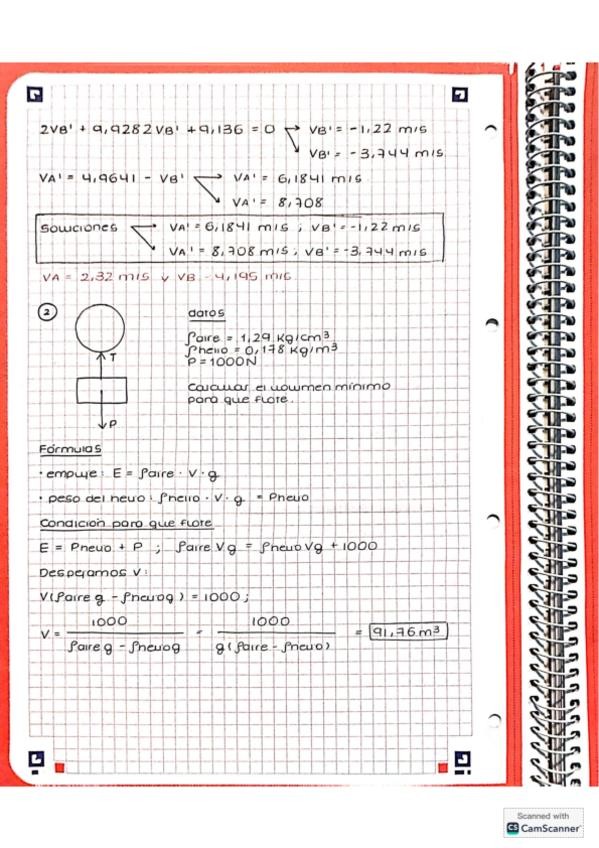 2VB' + 9,9282VB' + 9,136 = 0 → VB' = -1,22 m/s
VB' = -3,744 m/s
VA' = 4,9641 - VB' → VA' = 6,1841 m/s
VA' = 8,708
Soluciones → VA' = 6,1841 m/s ; VB' = -1,22 m/s
VA' = 8,708 m/s ; VB' = -3,744 m/s
VA = 2,32 m/s y VB = 4,195 m/s
2
datos
ρaire = 1,29 Kg/cm³
ρhelio = 0,178 Kg/m³
P = 1000N
T
Calcular el volumen mínimo
para que flote.
P
Fórmulas
· empuje: E = ρaire · V · g
· peso del helio: ρhelio · V · g = Phelio
Condición para que flote
E = Phelio + P ; ρaire Vg = ρhelio Vg + 1000
Despejamos V:
V(ρaire g - ρhelio g) = 1000 ;
V = 1000 / (ρaire g - ρhelio g) = 1000 / (g(ρaire - ρhelio)) = 91,76 m³
Scanned with
CS CamScanner